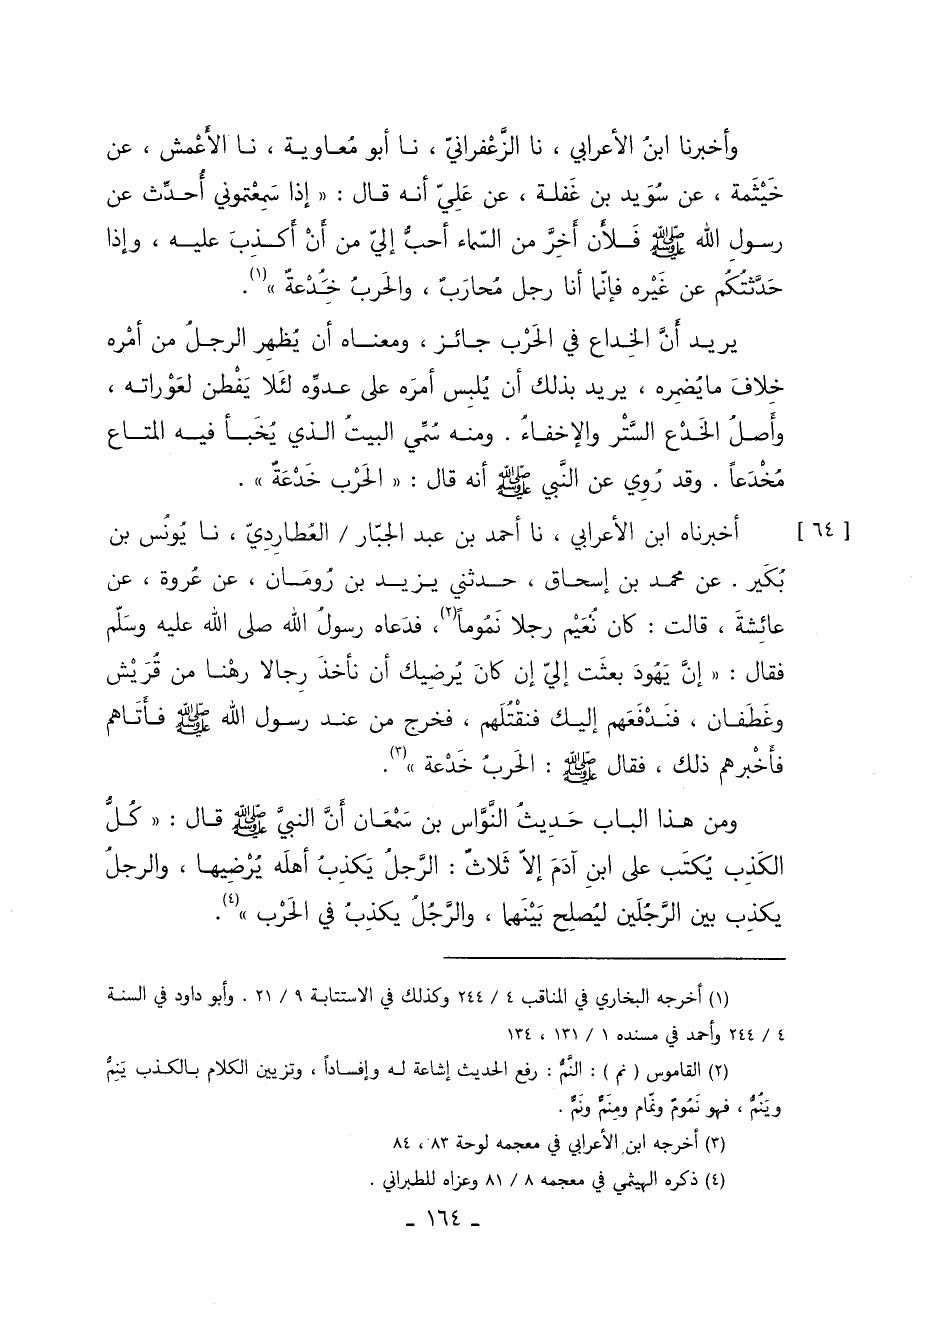 وأخبرنا ابنُ الأعرابي ، نا الزَّعْفرانيّ ، نـا أبو مُعاويـة ، نـا الأَعْمش ، عن
خَيْثَمة ، عن سُوَيد بن غَفلة ، عن عَليّ أنـه قـال : « إذا سَمِعْتموني أُحدِّث عن
رسـول الله ﷺ فَـلأن أَخِرَّ من السَّماء أحبُّ إليّ من أنْ أَكـذِبَ عليـه ، وإذا
حَدَّثتُكُم عن غَيْره فإنَّما أنا رجل مُحارَبٌ ، والحَربُ خُدْعةٌ »(١).
يريـد أنَّ الخِـداع في الحَرْب جـائـز ، ومعنـاه أن يُظهِر الرجـلُ من أمْره
خلافَ مايُضمِره ، يريد بذلك أن يُلبِس أمرَه على عدوِّه لئَلا يَفْطن لعَوْراتـه ،
وأَصلُ الخَدْع السَّتْر والإخفـاءُ . ومنـه سُمِّي البيتُ الـذي يُخبـأ فيـه المتـاع
مُخْدَعاً . وقد رُوِي عن النَّبي ﷺ أنه قال : « الحَرْب خَدْعَةٌ » .
[ ٦٤ ] أخبرناه ابن الأعرابي ، نا أحمد بن عبد الجبّار / العُطاردِيّ ، نـا يُونُس بن
بُكَير . عن محمـد بن إسحـاق ، حـدثني يـزيـد بن رُومَـان ، عن عُروة ، عن
عائشةَ ، قالت : كان نُعَيْم رجلا نَمُوماً(٢)، فدَعاه رسولُ الله صلى الله عليه وسَلّم
فقال : « إنَّ يَهُودَ بعثَت إليّ إن كانَ يُرضِيك أن نأخذَ رجالا رهْنـا من قُرَيْش
وغَطَفـان ، فنَـدْفَعَهم إليـك فنَقْتُلَهم ، فخرج من عنـد رسـول الله ﷺ فـأتَـاهم
فأخْبرهم ذلك ، فقال ﷺ : الحَربُ خَدْعة »(٣).
ومن هـذا البـاب حَـديثُ النَّوَّاس بن سَمْعَـان أنَّ النبيَّ ﷺ قـال : « كُـلُّ
الكَذِب يُكتَب على ابن آدَمَ إلاّ ثَلاثٌ : الرَّجلُ يَكذِبُ أهلَه يُرْضِيهـا ، والرجلُ
يكذِب بين الرَّجُلَين ليُصلِح بَيْنَهما ، والرَّجُلُ يكذِبُ في الحَرْب »(٤).
(١) أخرجه البخاري في المناقب ٤ / ٢٤٤ وكذلك في الاستتابة ٩ / ٢١ . وأبو داود في السنة
٤ / ٢٤٤ وأحمد في مسنده ١ / ١٣١ ، ١٣٤
(٢) القاموس ( نم ) : النَّمُّ : رفع الحديث إشاعة لـه وإفساداً ، وتزيين الكلام بـالكـذب يَنِمُّ
ويَنُمُّ ، فهو نَمُومٌ ونَمَّام ومِنَمٌّ ونَمٌّ .
(٣) أخرجه ابن الأعرابي في معجمه لوحة ٨٣ ، ٨٤
(٤) ذكره الهيثمي في معجمه ٨ / ٨١ وعزاه للطبراني .
ـ ١٦٤ ـ